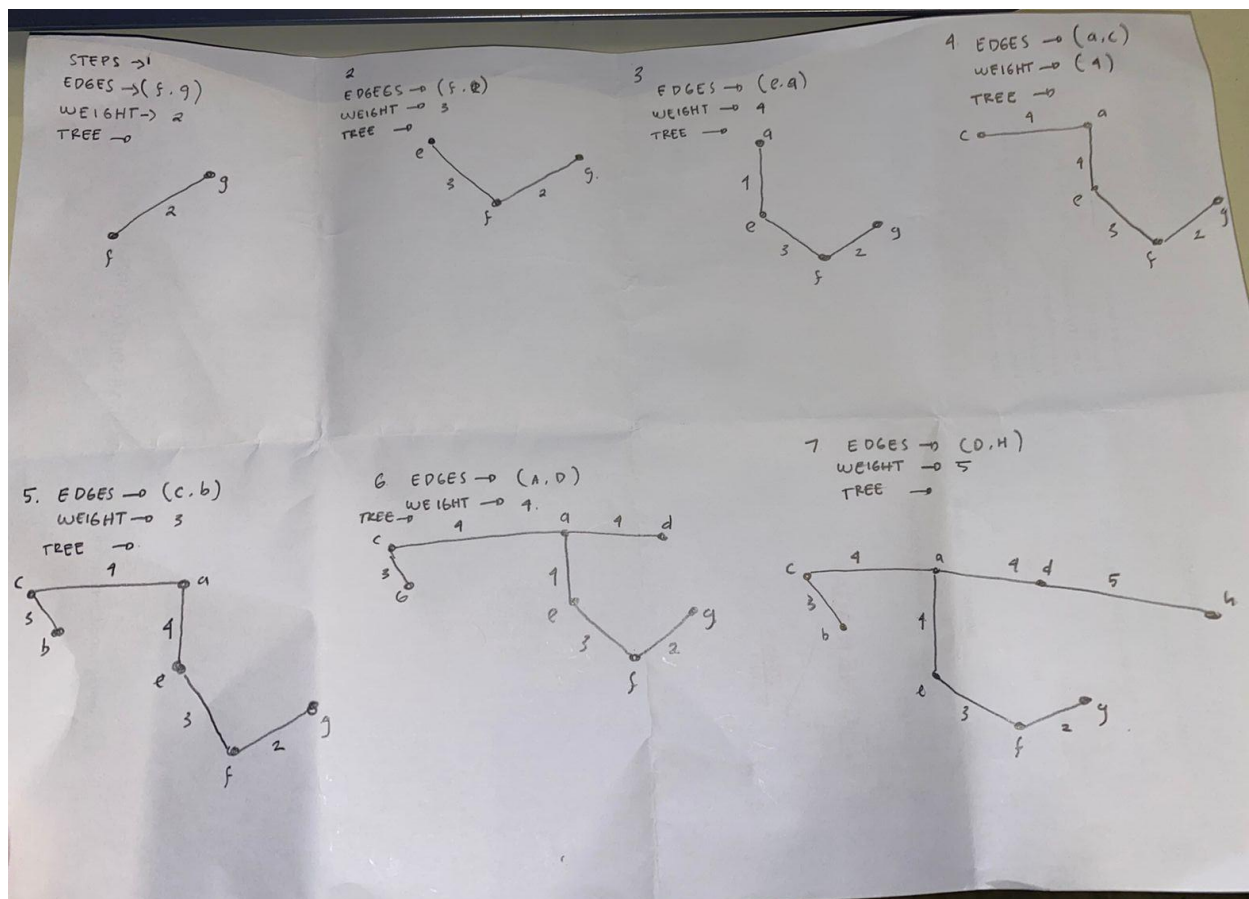 STEPS → 1
EDGES → (f.g)
WEIGHT → 2
TREE →
g
2
f
2
EDGEGS → (f.e)
WEIGHT → 3
TREE →
e
g.
3
2
f
3
EDGES → (e.a)
WEIGHT → 4
TREE →
a
4
e
g
3
2
f
4 EDGES → (a,c)
WEIGHT → (4)
TREE →
4
c
a
4
e
g
3
2
f
5. EDGES → (c.b)
WEIGHT → 3
TREE →
4
c
a
3
b
4
e
3
g
2
f
6 EDGES → (A,D)
WEIGHT → 4.
TREE →
4
a
4
d
c
3
b
4
e
g
3
2
f
7 EDGES → (D,H)
WEIGHT → 5
TREE →
4
a
4
d
5
c
h
3
b
4
e
3
2
g
f